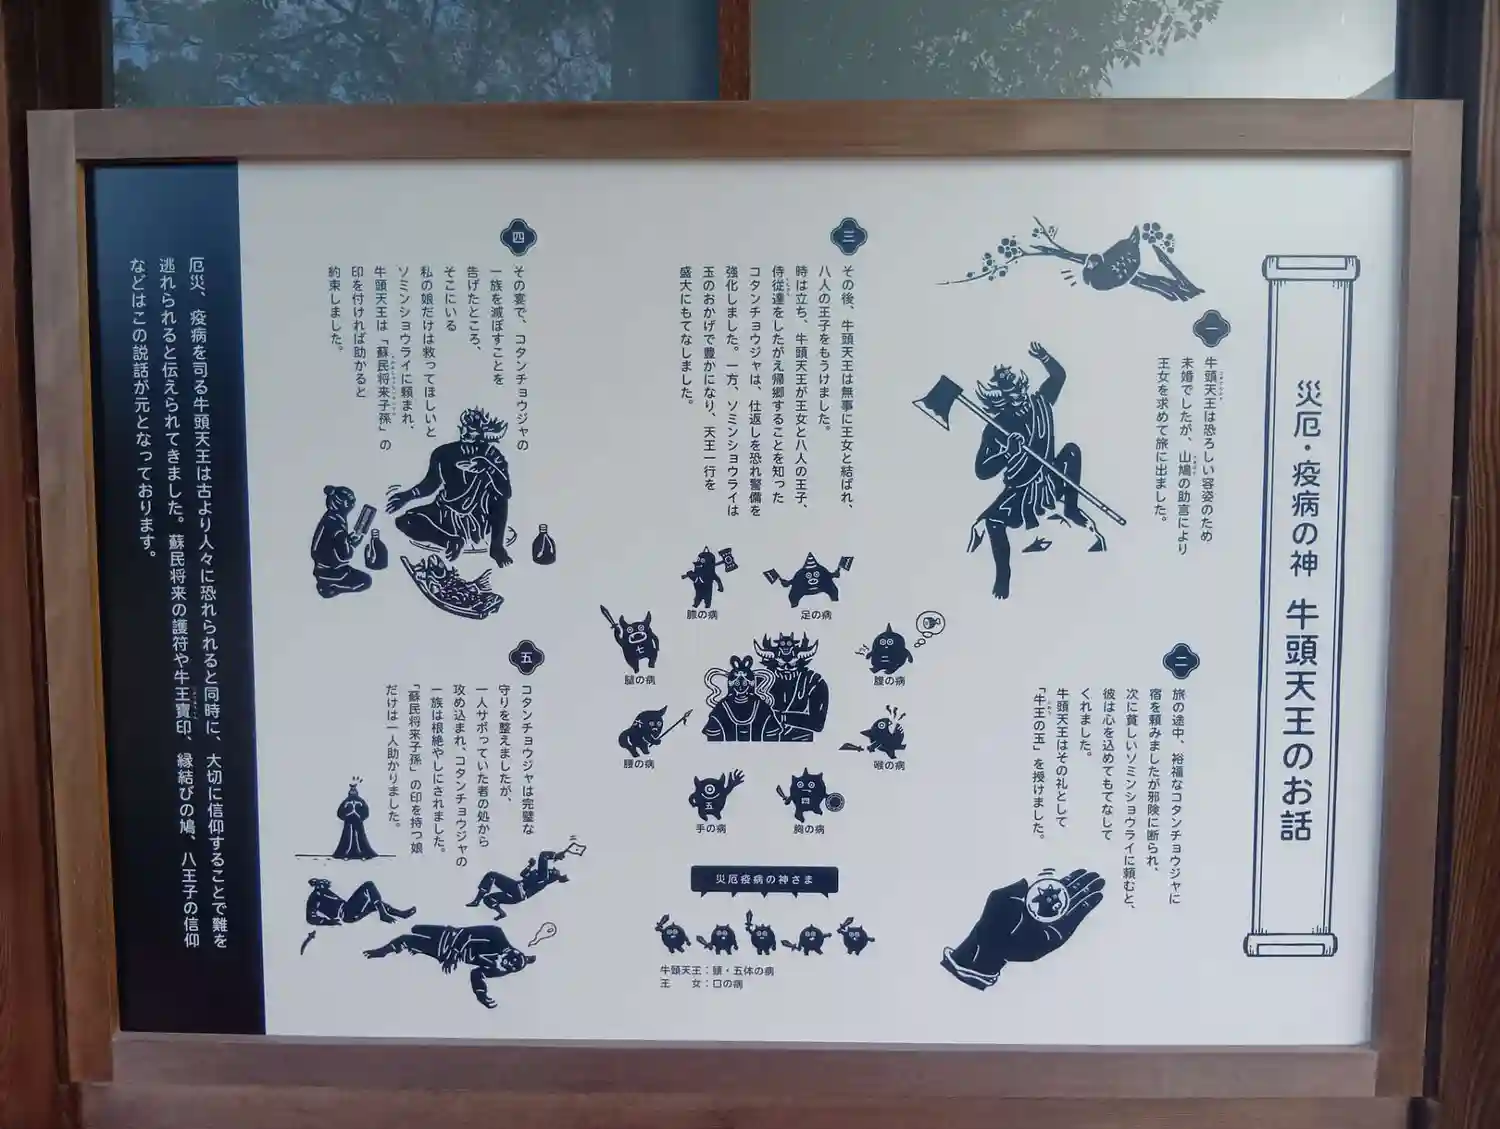 災厄・疫病の神 牛頭天王のお話
一
牛頭天王は恐ろしい容姿のため
未婚でしたが、山鳩の助言により
王女を求めて旅に出ました。
二
旅の途中、裕福なコタンチョウジャに
宿を頼みましたが邪険に断られ、
次に貧しいソミンショウライに頼むと、
彼は心を込めてもてなして
くれました。
牛頭天王はその礼として
「牛王の玉」を授けました。
三
その後、牛頭天王は無事に王女と結ばれ、
八人の王子をもうけました。
時は立ち、牛頭天王が王女と八人の王子、
侍従達をしたがえ帰郷することを知った
コタンチョウジャは、仕返しを恐れ警備を
強化しました。一方、ソミンショウライは
玉のおかげで豊かになり、天王一行を
盛大にもてなしました。
八
膝の病
足の病
七
腿の病
二
腹の病
腰の病
喉の病
五
手の病
四
胸の病
災厄疫病の神さま
牛頭天王：頭・五体の病
王 女：口の病
四
その宴で、コタンチョウジャの
一族を滅ぼすことを
告げたところ、
そこにいる
私の娘だけは救ってほしいと
ソミンショウライに頼まれ、
牛頭天王は「蘇民将来子孫」の
印を付ければ助かると
約束しました。
五
コタンチョウジャは完璧な
守りを整えましたが、
一人サボっていた者の処から
攻め込まれ、コタンチョウジャの
一族は根絶やしにされました。
「蘇民将来子孫」の印を持つ娘
だけは一人助かりました。
厄災、疫病を司る牛頭天王は古より人々に恐れられると同時に、大切に信仰することで難を
逃れられると伝えられてきました。蘇民将来の護符や牛王寶印、縁結びの鳩、八王子の信仰
などはこの説話が元となっております。